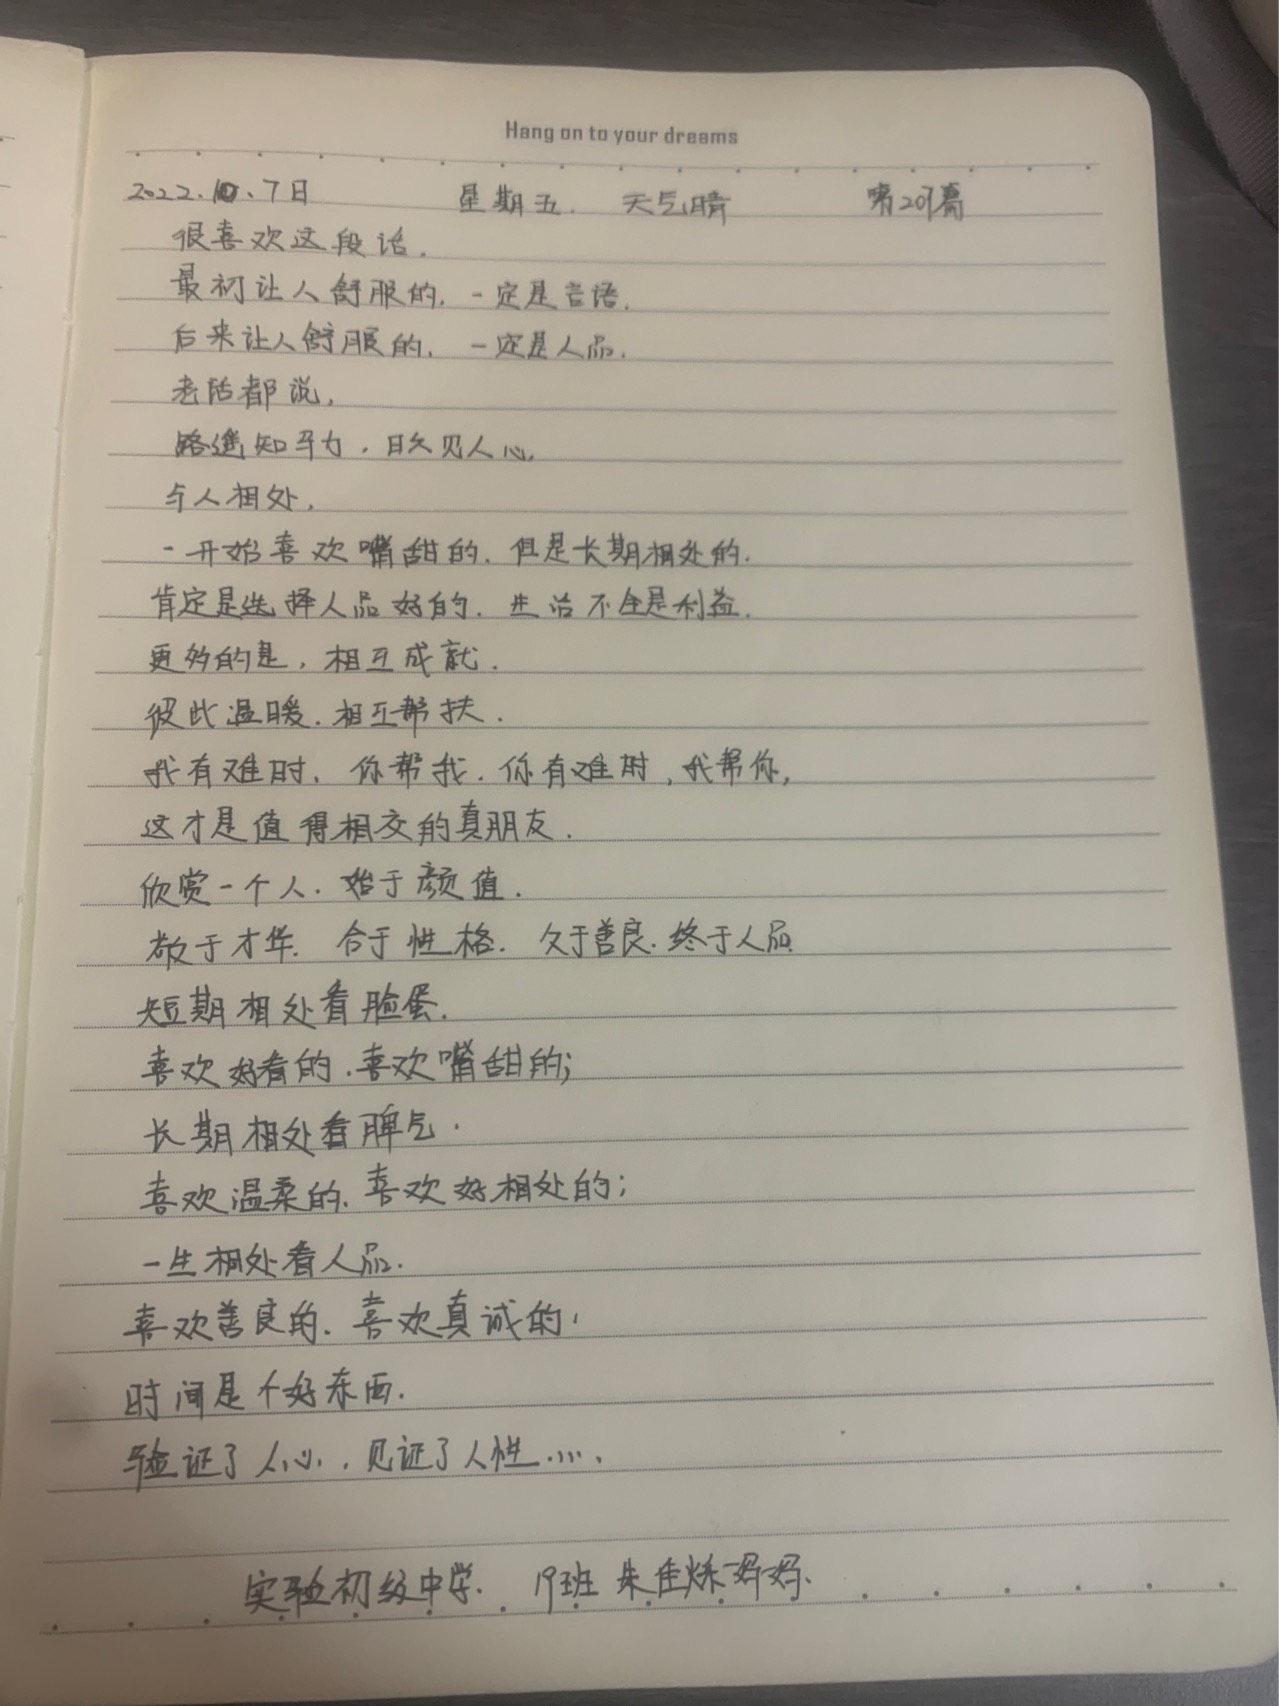 Hang on to your dreams
2022.10.7日 星期五. 天气晴 第207篇
很喜欢这段话.
最初让人舒服的.一定是言语.
后来让人舒服的,一定是人品.
老话都说,
路遥知马力,日久见人心.
与人相处,
一开始喜欢嘴甜的.但是长期相处的.
肯定是选择人品好的.生活不全是利益.
更多的是,相互成就.
彼此温暖.相互帮扶.
我有难时.你帮我.你有难时,我帮你,
这才是值得相交的真朋友.
欣赏一个人.始于颜值.
敬于才华.合于性格.久于善良.终于人品
短期相处看脸蛋.
喜欢好看的.喜欢嘴甜的;
长期相处看脾气.
喜欢温柔的.喜欢好相处的;
一生相处看人品.
喜欢善良的.喜欢真诚的.
时间是个好东西.
验证了人心.,见证了人性……
实验初级中学. 19班 朱佳烁妈妈.